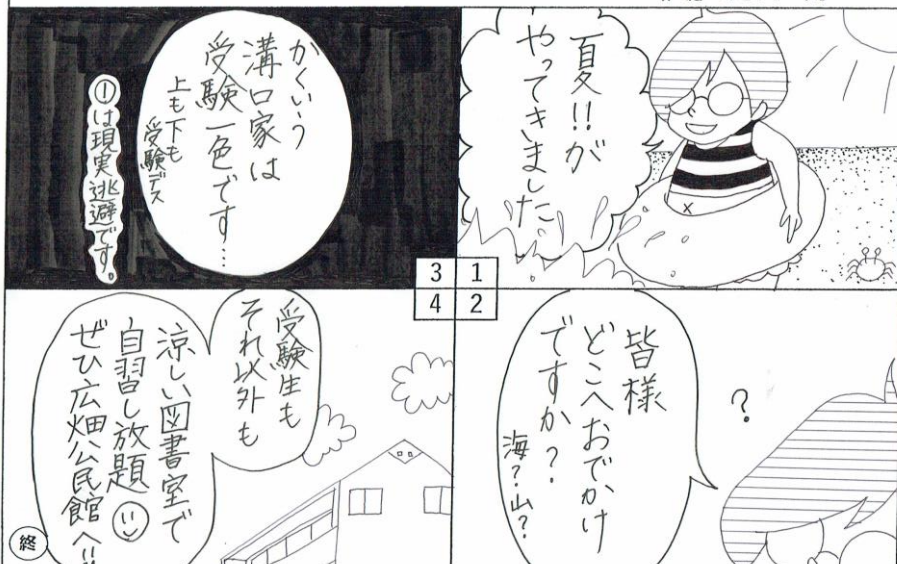 夏!!が
やってきました
1
皆様
どこへおでかけ
ですか?
海?山?
?
2
かくいう
溝口家は
受験一色です…
上も下も
受験デス
①は現実逃避です。
3
受験生も
それ以外も
涼しい図書室で
自習し放題
ぜひ広畑公民館へ!!
4
終